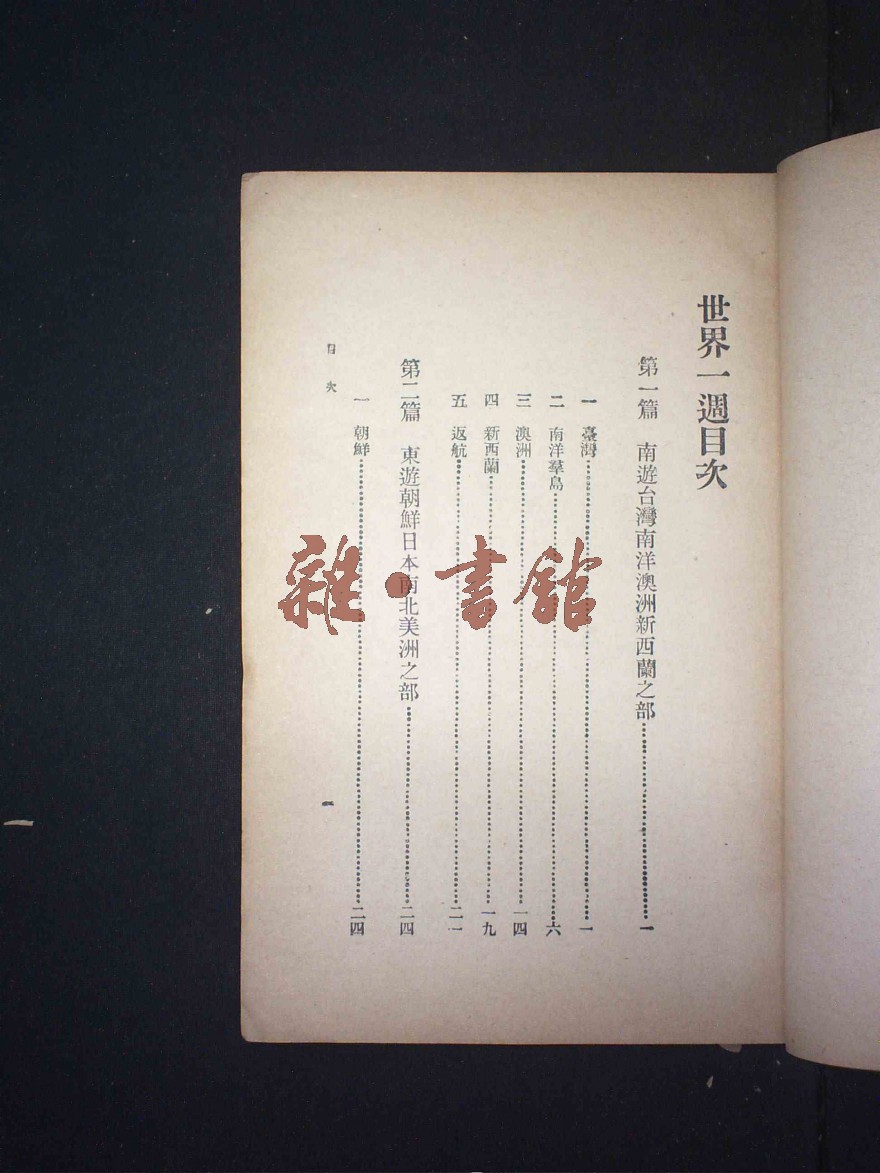 世界一週目次
第一篇　南遊台灣南洋澳洲新西蘭之部……一
一　臺灣……一
二　南洋羣島……六
三　澳洲……一四
四　新西蘭……一九
五　返航……二一
第二篇　東遊朝鮮日本南北美洲之部……二四
一　朝鮮……二四
目次
一
雜·書館